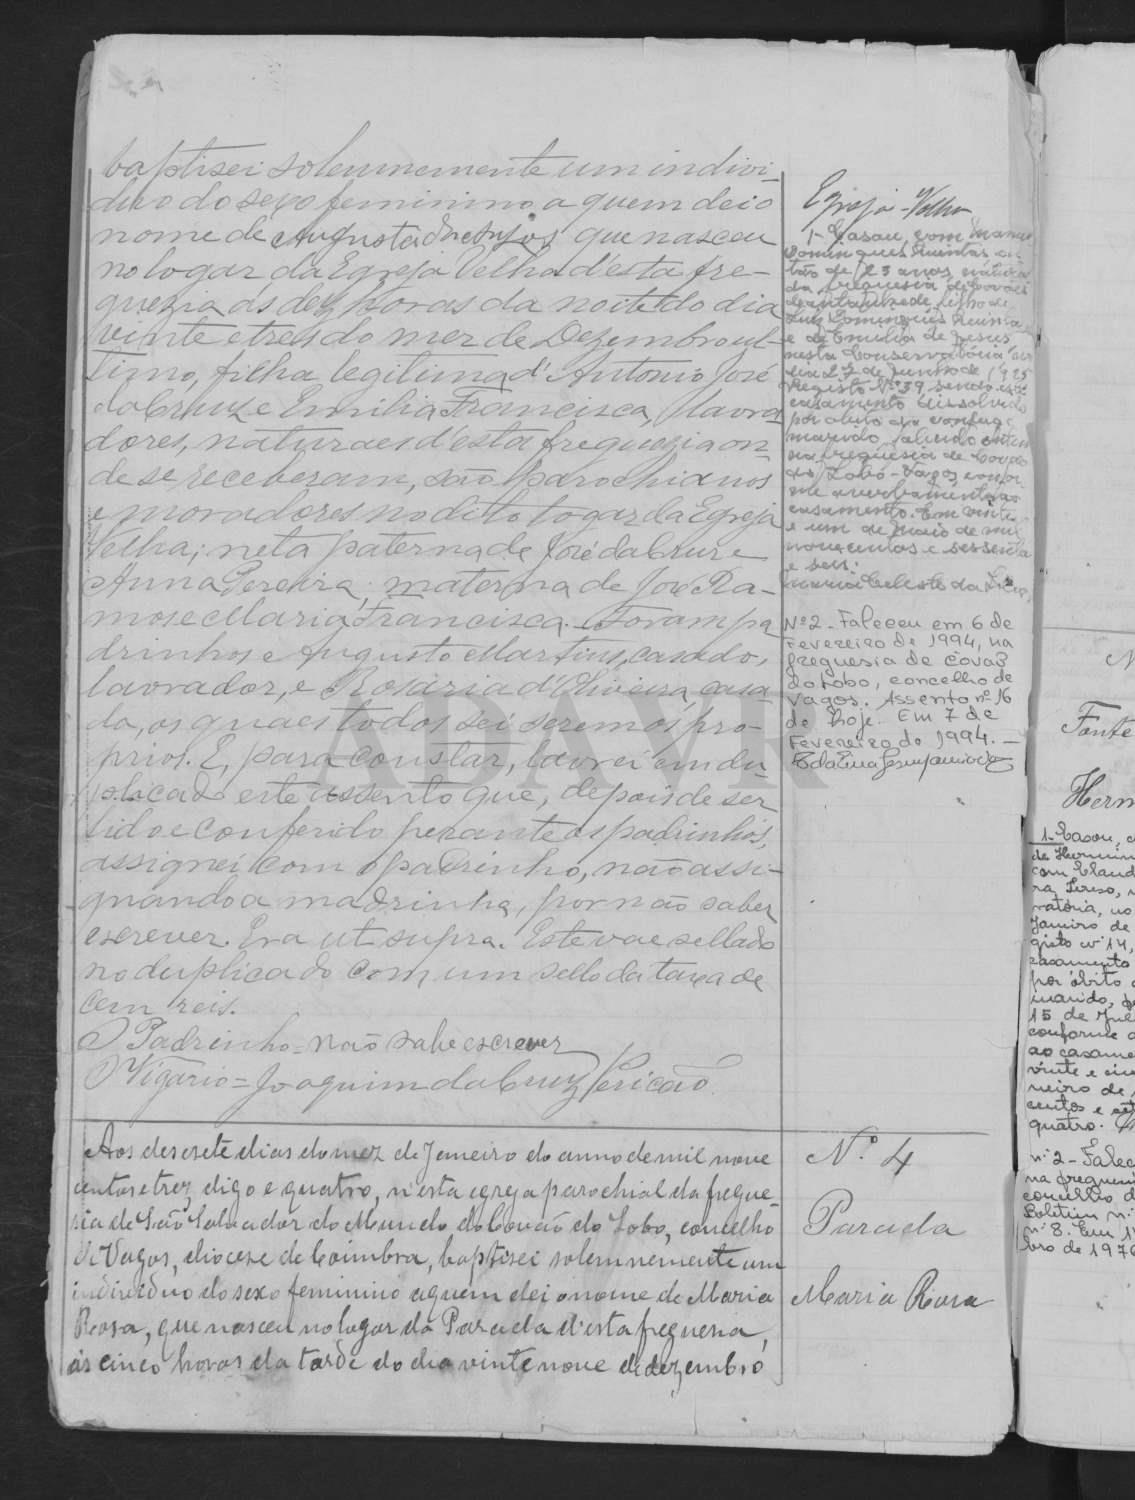 baptisei solemnemente um indivi-
duo do sexo feminino a quem dei o
nome de Augusta dos Anjos que nasceu
no logar da Egreja Velha d'esta fre-
guezia as dez horas da noite do dia
vinte e tres do mez de Dezembro ul-
timo, filha legitima d'Antonio José
da Cruz e Emilia Francisca, lavra
dores, naturaes d'esta freguezia on-
de se receberam, são parochianos
e moradores no dito logar da Egreja
Velha; neta paterna de José da Cruz e
Anna Pereira; materna de José Ra-
mos e Maria Francisca. Foram pa
drinhos Augusto Martins, casado,
lavrador, e Rosaria d'Oliveira, casa
da, os quaes todos sei serem os pro-
prios. E, para constar, lavrei em du-
plicado este assento que, depois de ser
lido e conferido perante os padrinhos,
assignei com o padrinho, não assi-
gnando a madrinha, por não saber
escrever. Era ut supra. Este vae sellado
no duplicado com um sello da taxa de
cem reis.
O Padrinho = não sabe escrever
O Vigario = Joaquim da Cruz Pericão
Egreja-Velha
1- Casou com Manuel
Domingues Quintas en
tão de 23 anos, natural
da freguesia de Covões
Cantanhede, filho de
Luiz Domingues Quintas
e de Emilia de Jesus
nesta Conservatória
dia 27 de Junho de 1925
Registo Nº 39, sendo este
casamento dissolvido
por obito do conjuge
marido, falecido ontem
na freguesia de Covão
do Lobo-Vagos, confor
me averbamento ao
casamento. Em vinte
e um de Maio de mil
novecentos e sessenta
e seis.
Maria Celeste da
Nº2 - Faleceu em 6 de
Fevereiro de 1994, na
freguesia de Covão
do Lobo, concelho de
Vagos. Assento nº 16
de hoje. Em 7 de
Fevereiro de 1994. —
ADAVR
Aos desesete dias do mez de Janeiro do anno de mil nove
centos e trez, digo e quatro, n'esta egreja parochial da fregue-
sia de São Salvador do Mundo do Covão do Lobo, concelho
de Vagos, diocese de Coimbra, baptisei solemnemente um
individuo do sexo feminino a quem dei o nome de Maria
Rosa, que nasceu no logar da Parada d'esta freguesia,
ás cinco horas da tarde do dia vinte nove de dezembro
N.º 4
Parada
Maria Rosa
N
Fonte
Herm
1- Casou, c
de Hermin
com Claud
ra, Lereso,
vatória, no
Janeiro de
gisto nº 14,
casamento
por óbito d
marido,
15 de Jul
conforme a
ao casame
vinte e cin
neiro de
centos e
quatro.
nº 2 - Falec
na freguesi
concelho d
Boletim nº
nº 8. Em 1
bro de 1976